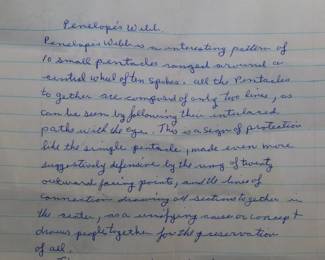 Penelope's Webb.
Penelopes Webb is a interesting pattern of
10 small pentacles ranged around a
central wheel of ten spokes. all the Pentacles
to gether are composed of only two lines, as
can be seem by following their interlaced
paths with the eye. This is a Segn of protection
like the single pentacle, made even more
suggestively defensive by the ring of twenty
outward facing points, and the lines of
connection drawing all sections together in
the senter, as a unifying cause or concept
draws people together for the preservation
of all.